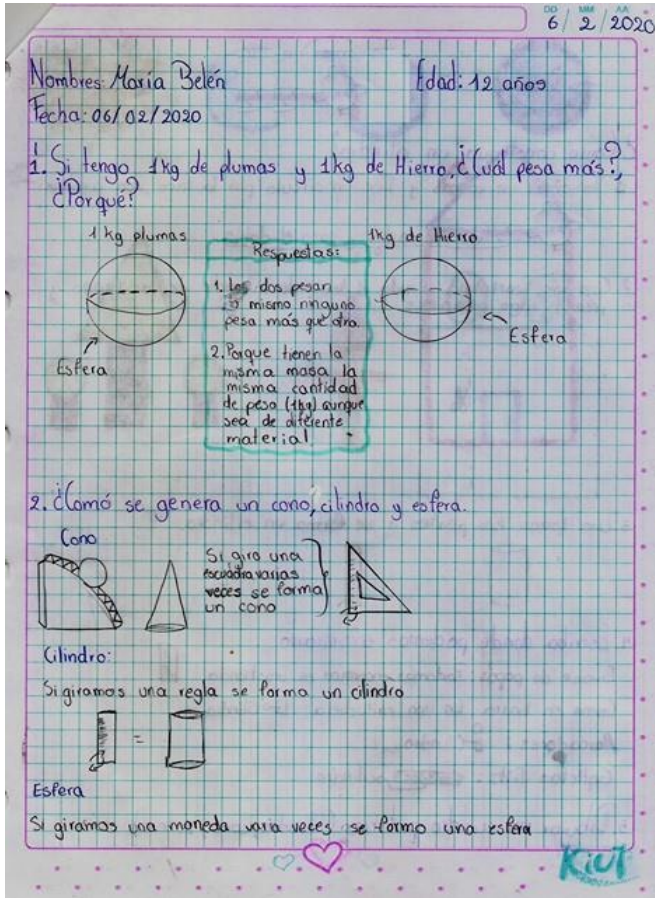 DD MM AA
6/ 2/2020
Nombres: María Belén Edad: 12 años
Fecha: 06/02/2020
1. Si tengo 1kg de plumas y 1kg de Hierro, ¿Cuál pesa más?,
¿Porqué?
1 kg plumas
Esfera
Respuestas:
1. Los dos pesan
lo mismo ninguno
pesa más que otro.
2. Porque tienen la
misma masa la
misma cantidad
de peso (1kg) aunque
sea de diferente
material.
1kg de Hierro
Esfera
2. ¿Comó se genera un cono, cilindro y esfera.
Cono
Si giro una
escuadra varias
veces se forma
un cono
Cilindro:
Si giramos una regla se forma un cilindro
=
Esfera
Si giramos una moneda varia veces se formo una esfera
KiUT